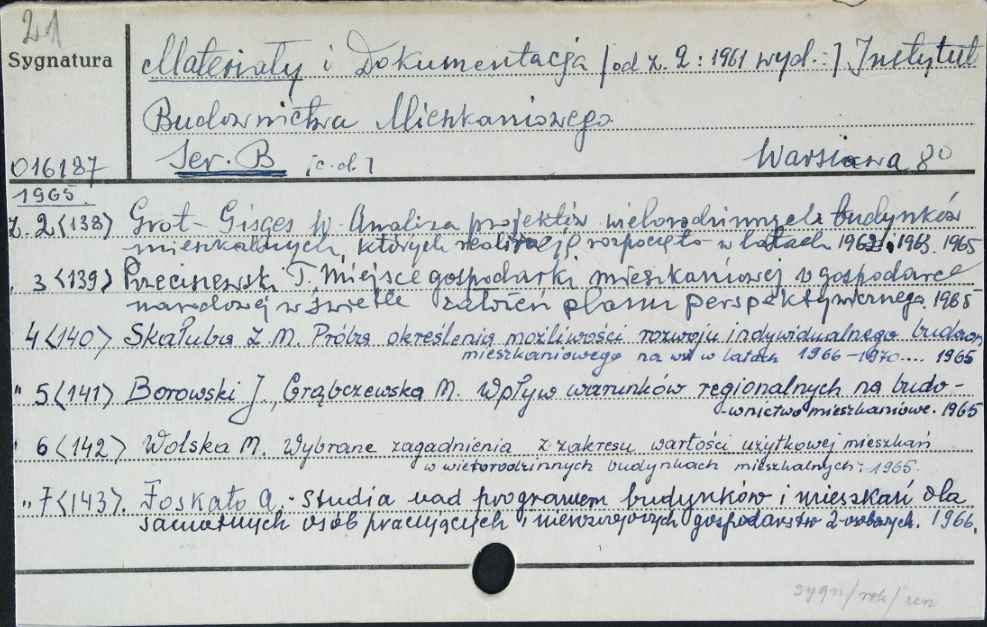 21
Sygnatura
Materiały i Dokumentacja [od z. 2 : 1961 wyd. :] Instytut
Budownictwa Mieszkaniowego
016187 Ser. B [c.d.] Warszawa 80
1965.
z. 2 <138> Grot-Gisges W. Analiza projektów wielorodzinnych budynków
mieszkalnych, których realizację rozpoczęto w latach 1962, 1963. 1965
3 <139> Przeciszewski T. Miejsce gospodarki mieszkaniowej w gospodarce
narodowej w świetle założeń planu perspektywicznego 1965
4 <140> Skałuba Z. M. Próba określenia możliwości rozwoju indywidualnego budown.
mieszkaniowego na wsi w latach 1966-1970.... 1965
" 5 <141> Borowski J., Grąbczewska M. Wpływ warunków regionalnych na budo-
wnictwo mieszkaniowe. 1965
" 6 <142> Wolska M. Wybrane zagadnienia z zakresu wartości użytkowej mieszkań
w wielorodzinnych budynkach mieszkalnych. 1965.
" 7 <143>. A. Studia nad programem budynków i mieszkań dla
samotnych osób pracujących i nierozwojowych gospodarstw 2-osobowych. 1966.
sygn/rek/